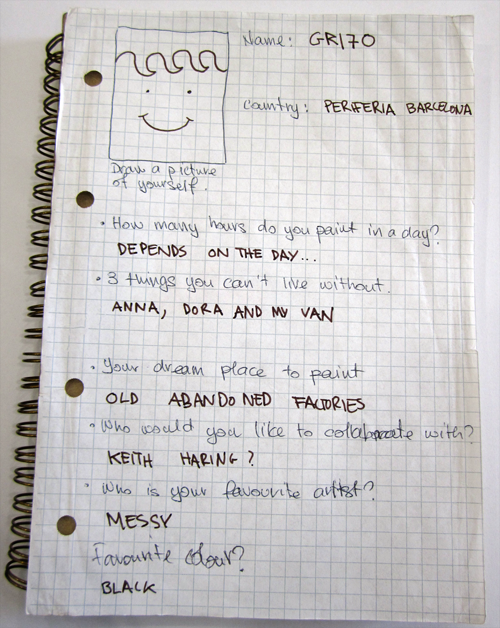 Name: GR170
Country: PERIFERIA BARCELONA
Draw a picture
of yourself.
• How many hours do you paint in a day?
DEPENDS ON THE DAY...
• 3 things you can't live without.
ANNA, DORA AND MY VAN
• Your dream place to paint
OLD ABANDONED FACTORIES
• Who would you like to collaborate with?
KEITH HARING?
• Who is your favourite artist?
MESSY
Favourite colour?
BLACK